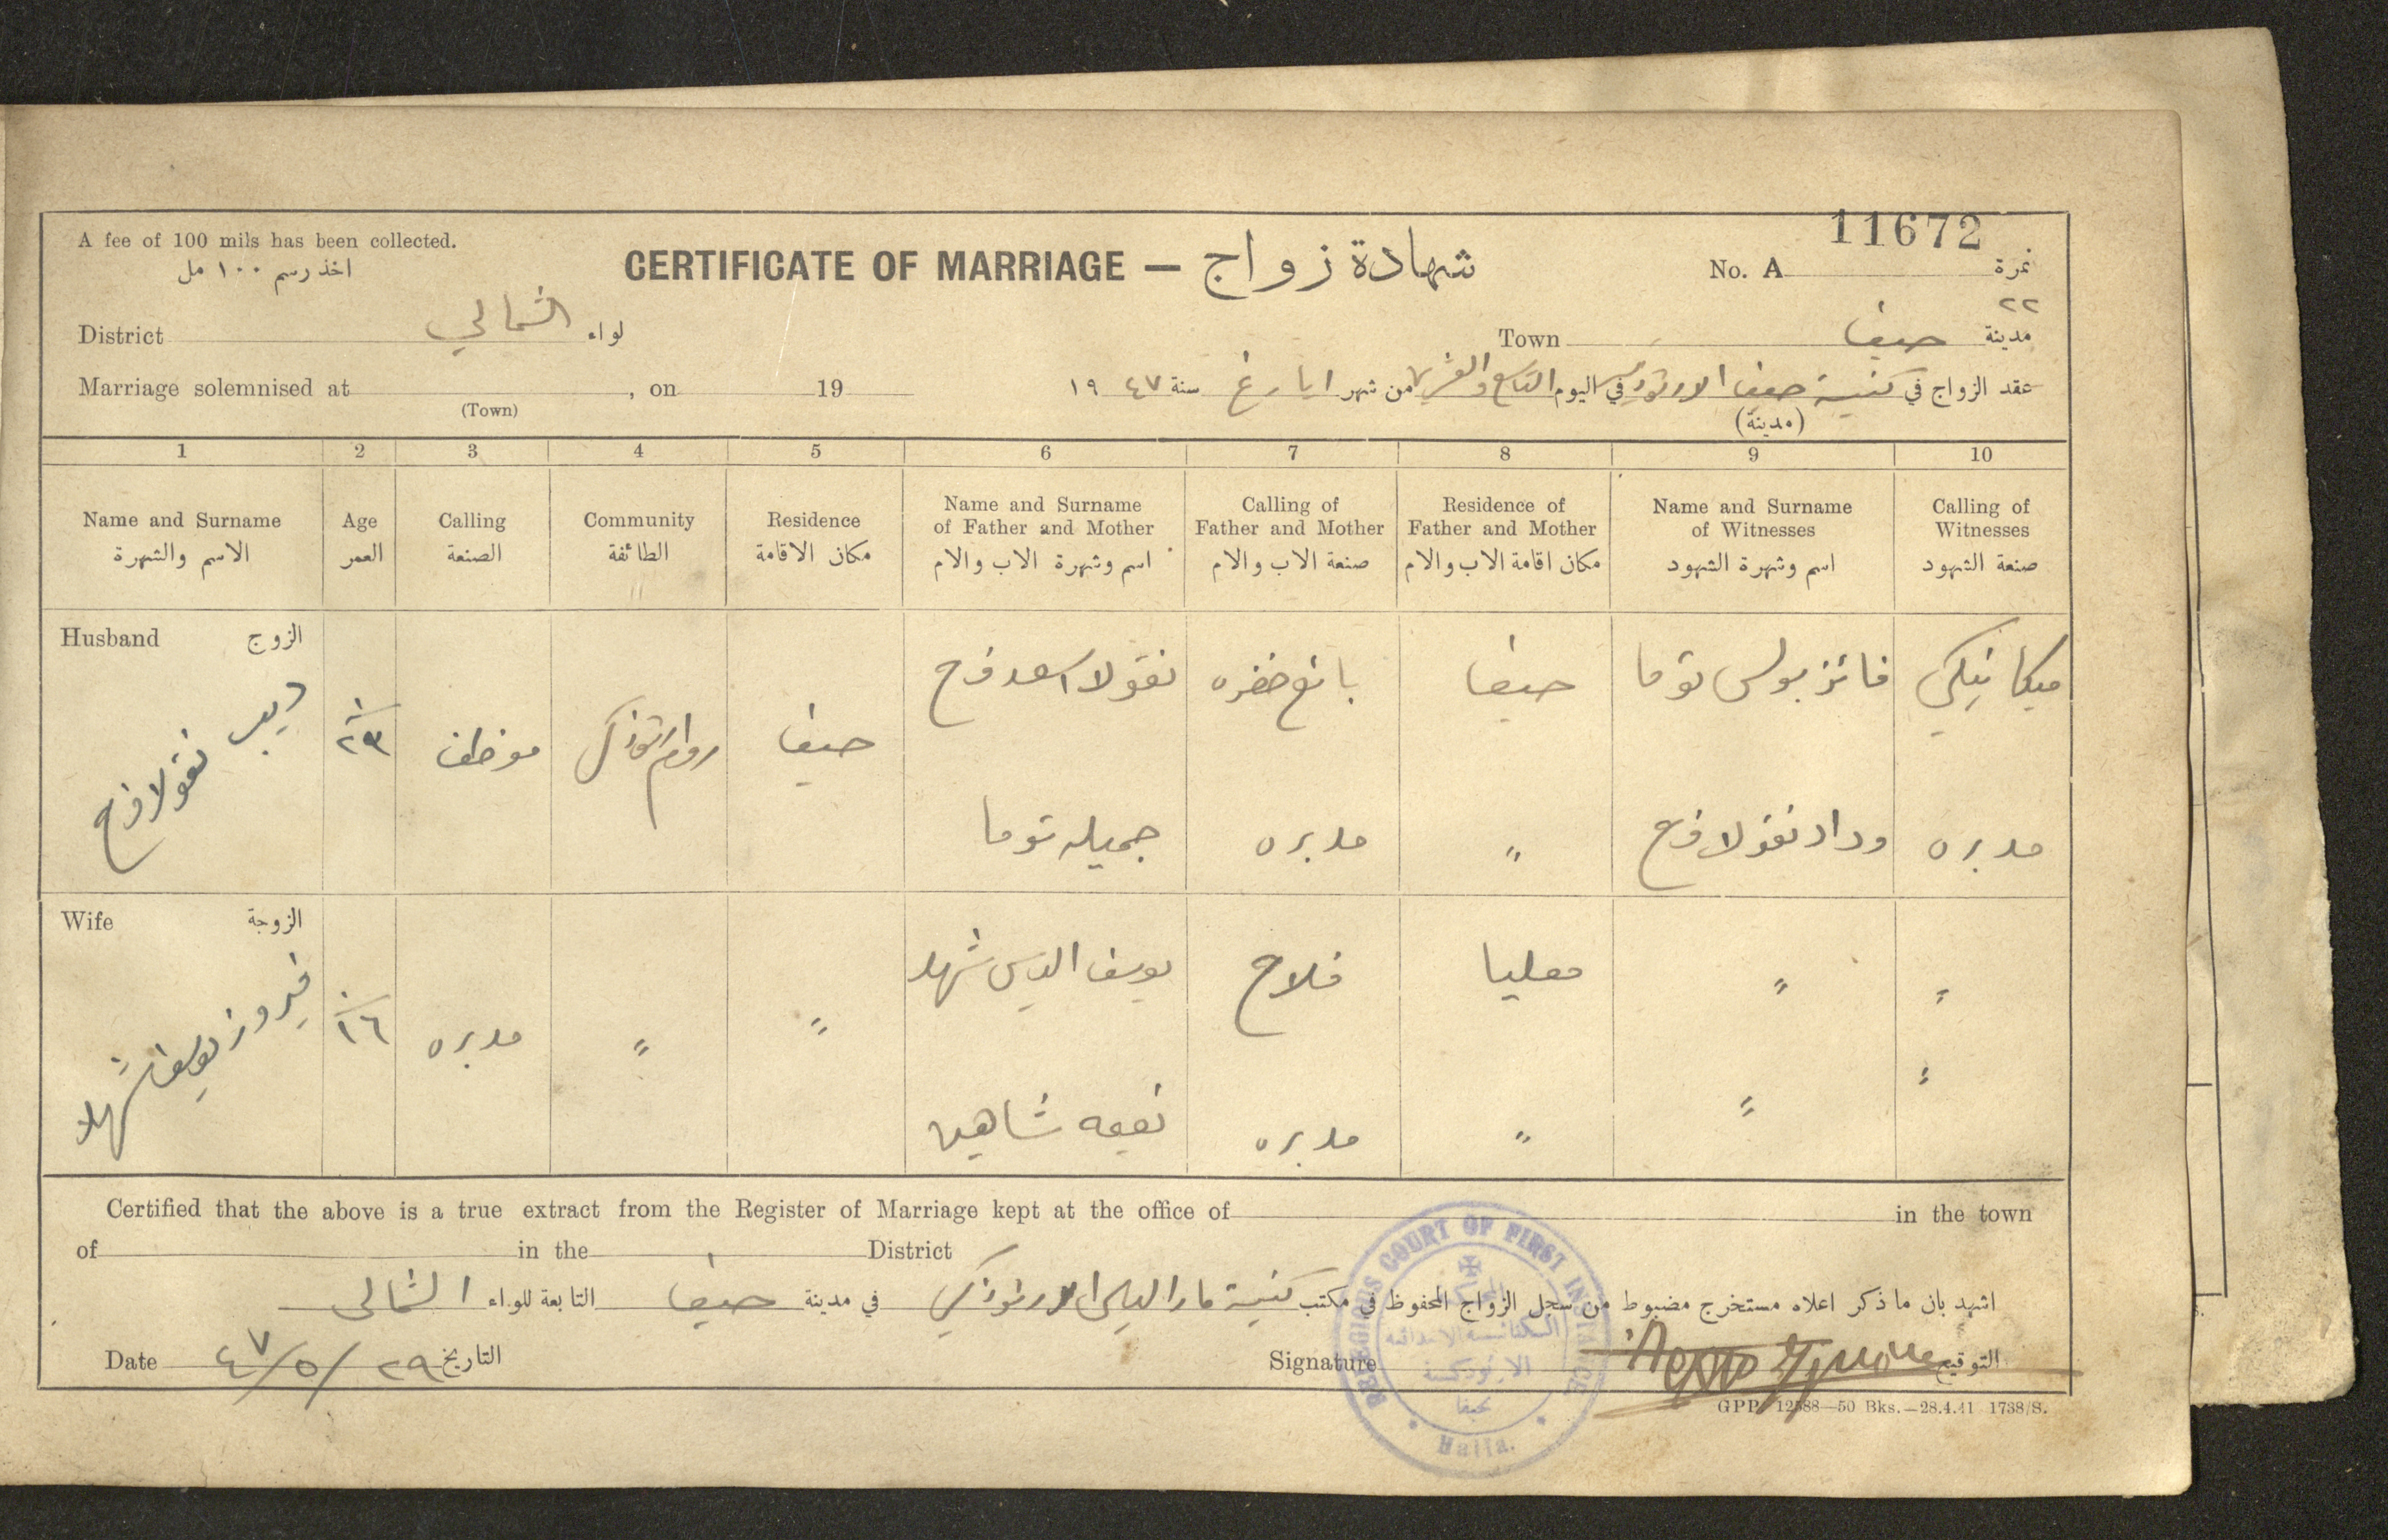 11672
A fee of 100 mils has been collected.
اخذ رسم ١٠٠ مل
CERTIFICATE OF MARRIAGE — شهادة زواج
No. A نمرة
٢٢
District لواء الشمالي
Town مدينة حيفا
Marriage solemnised at , on 19
(Town)
عقد الزواج في كنيسة حيفا الارثوذكسية في اليوم التاسع والعشرين من شهر ايار غ سنة ١٩٤٧
(مدينة)
1 2 3 4 5 6 7 8 9 10
Name and Surname الاسم والشهرة
Age العمر
Calling الصنعة
Community الطائفة
Residence مكان الاقامة
Name and Surname of Father and Mother اسم وشهرة الاب والام
Calling of Father and Mother صنعة الاب والام
Residence of Father and Mother مكان اقامة الاب والام
Name and Surname of Witnesses اسم وشهرة الشهود
Calling of Witnesses صنعة الشهود
Husband الزوج
ديب نقولا فرح
٢٣
موظف
روم ارثوذكس
حيفا
نقولا اسعد فرح
بائع خضره
حيفا
فائز بولس توما
ميكانيكي
جميله توما
مدبره
"
وداد نقولا فرح
مدبره
Wife الزوجة
فيروز يوسف شهلا
١٦
مدبره
"
"
يوسف الياس شهلا
فلاح
معليا
"
"
نعيمه شاهين
مدبره
"
"
"
Certified that the above is a true extract from the Register of Marriage kept at the office of in the town
of in the District
اشهد بان ما ذكر اعلاه مستخرج مضبوط من سجل الزواج المحفوظ في مكتب كنيسة مار الياس الارثوذكسي في مدينة حيفا التابعة للواء الشمالي
Date ٢٩/٥/٤٧ التاريخ
Signature التوقيع
RELIGIOUS COURT OF FIRST INSTANCE
الكنائسية الابتدائية
الارثوذكسية
بحيفا
Haifa.
GPP. 12588—50 Bks.—28.4.41 1738/S.